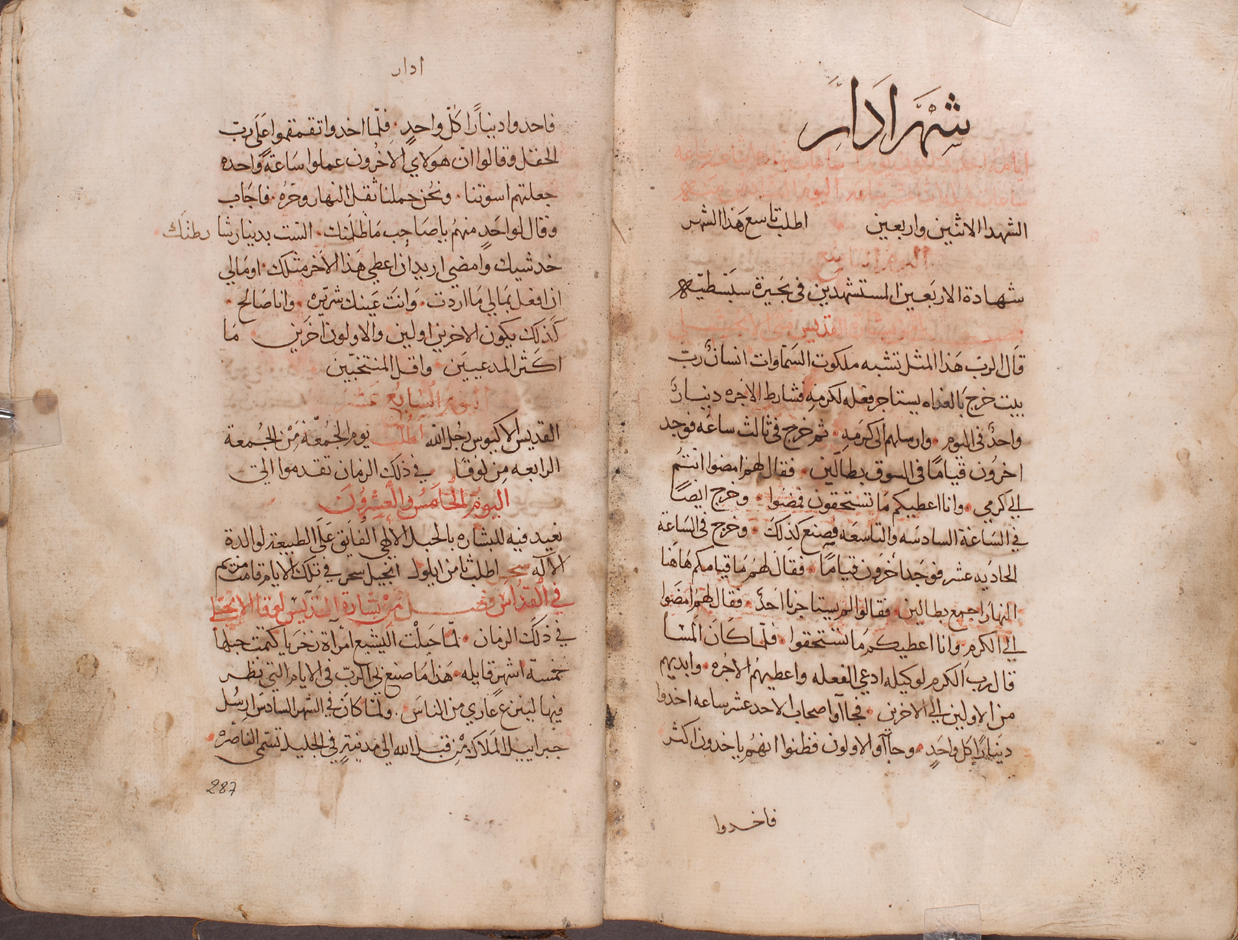 شهر ادار
الشهدا الاثنين واربعين اطلب تاسع هذا الشهر
شهادة الاربعين المستشهدين في بحيرة سبسطيه
قال الرب هذا المثل تشبه ملكوت السماوات انسان رب
بيت خرج بالغداه يستاجر فعله لكرمه فشارط الاجره دينارً
واحدً في اليوم وارسلهم الى كرمه ثم خرج في ثالث ساعه فوجد
اخرون قيامًا في السوق بطالين فقال لهم امضوا انتم
الي كرمي وانا اعطيكم ما تستحقون فمضوا وخرج ايضًا
في الساعة السادسه والتاسعه فصنع كذلك وخرج في الساعة
الحاديه عشر فوجد اخرون قيامًا فقال لهم ما قيامكم هاهنا
النهار اجمع بطالين فقالوا لم يستاجرنا احدً فقال لهم امضوا
الي الكرم وانا اعطيكم ما تستحقوا فلما كان المسا
قال رب الكرم لوكيله ادعي الفعله واعطيهم الاجره وابديهم
من الاولين الي الاخرين فجااو اصحاب الاحد عشر ساعه اخدوا
دينارًا كل واحدٍ وجااو الاولون فظنوا انهم ياخدون اكثر
فاخدوا
ادار
فاخدوا دينارًا كل واحدٍ فلما اخدوا تقمقموا على رب
الحقل وقالوا ان هولاي الاخرون عملوا ساعةً واحده
جعلتهم اسوتنا ونحن حملنا ثقل النهار وحره فاجاب
وقال لواحدٍ منهم يا صاحب ما ظلمتك الست بدينار شارطتك
خد شيك وامضي اريد ان اعطي هذا الاخر مثلك اومالي
ان افعل بمالي ما اردت وانت عينك شريره وانا صالح
كذلك يكون الاخرين اولين والاولون اخرين ما
اكثر المدعيين واقل المنتخبين
اليوم السابع عشر
القديس الاكسيوس رجل الله اطلب يوم الجمعة من الجمعة
الرابعه من لوقا في ذلك الزمان تقدموا الى
اليوم الخامس والعشرون
نعيد فيه للبشاره بالحبل الالهي الفايق على الطبيعة لوالدة
الاله سحر اطلب ثامن ايلول انجيل سحر في تلك الايام قامت مريم
في القداس فصل من بشارة القديس لوقا الانجيلي
في ذلك الزمان لما حبلت اليشبع امراة زخريا كتمت حبلها
خمسة اشهر قايله هذا ما صنع لي الرب في الايام التي نظر
فيها لينزع عاري من الناس ولما كان في الشهر السادس ارسل
جبراييل الملاك من قبل الله الى مدينةٍ في الجليل تسمى الناصره
287